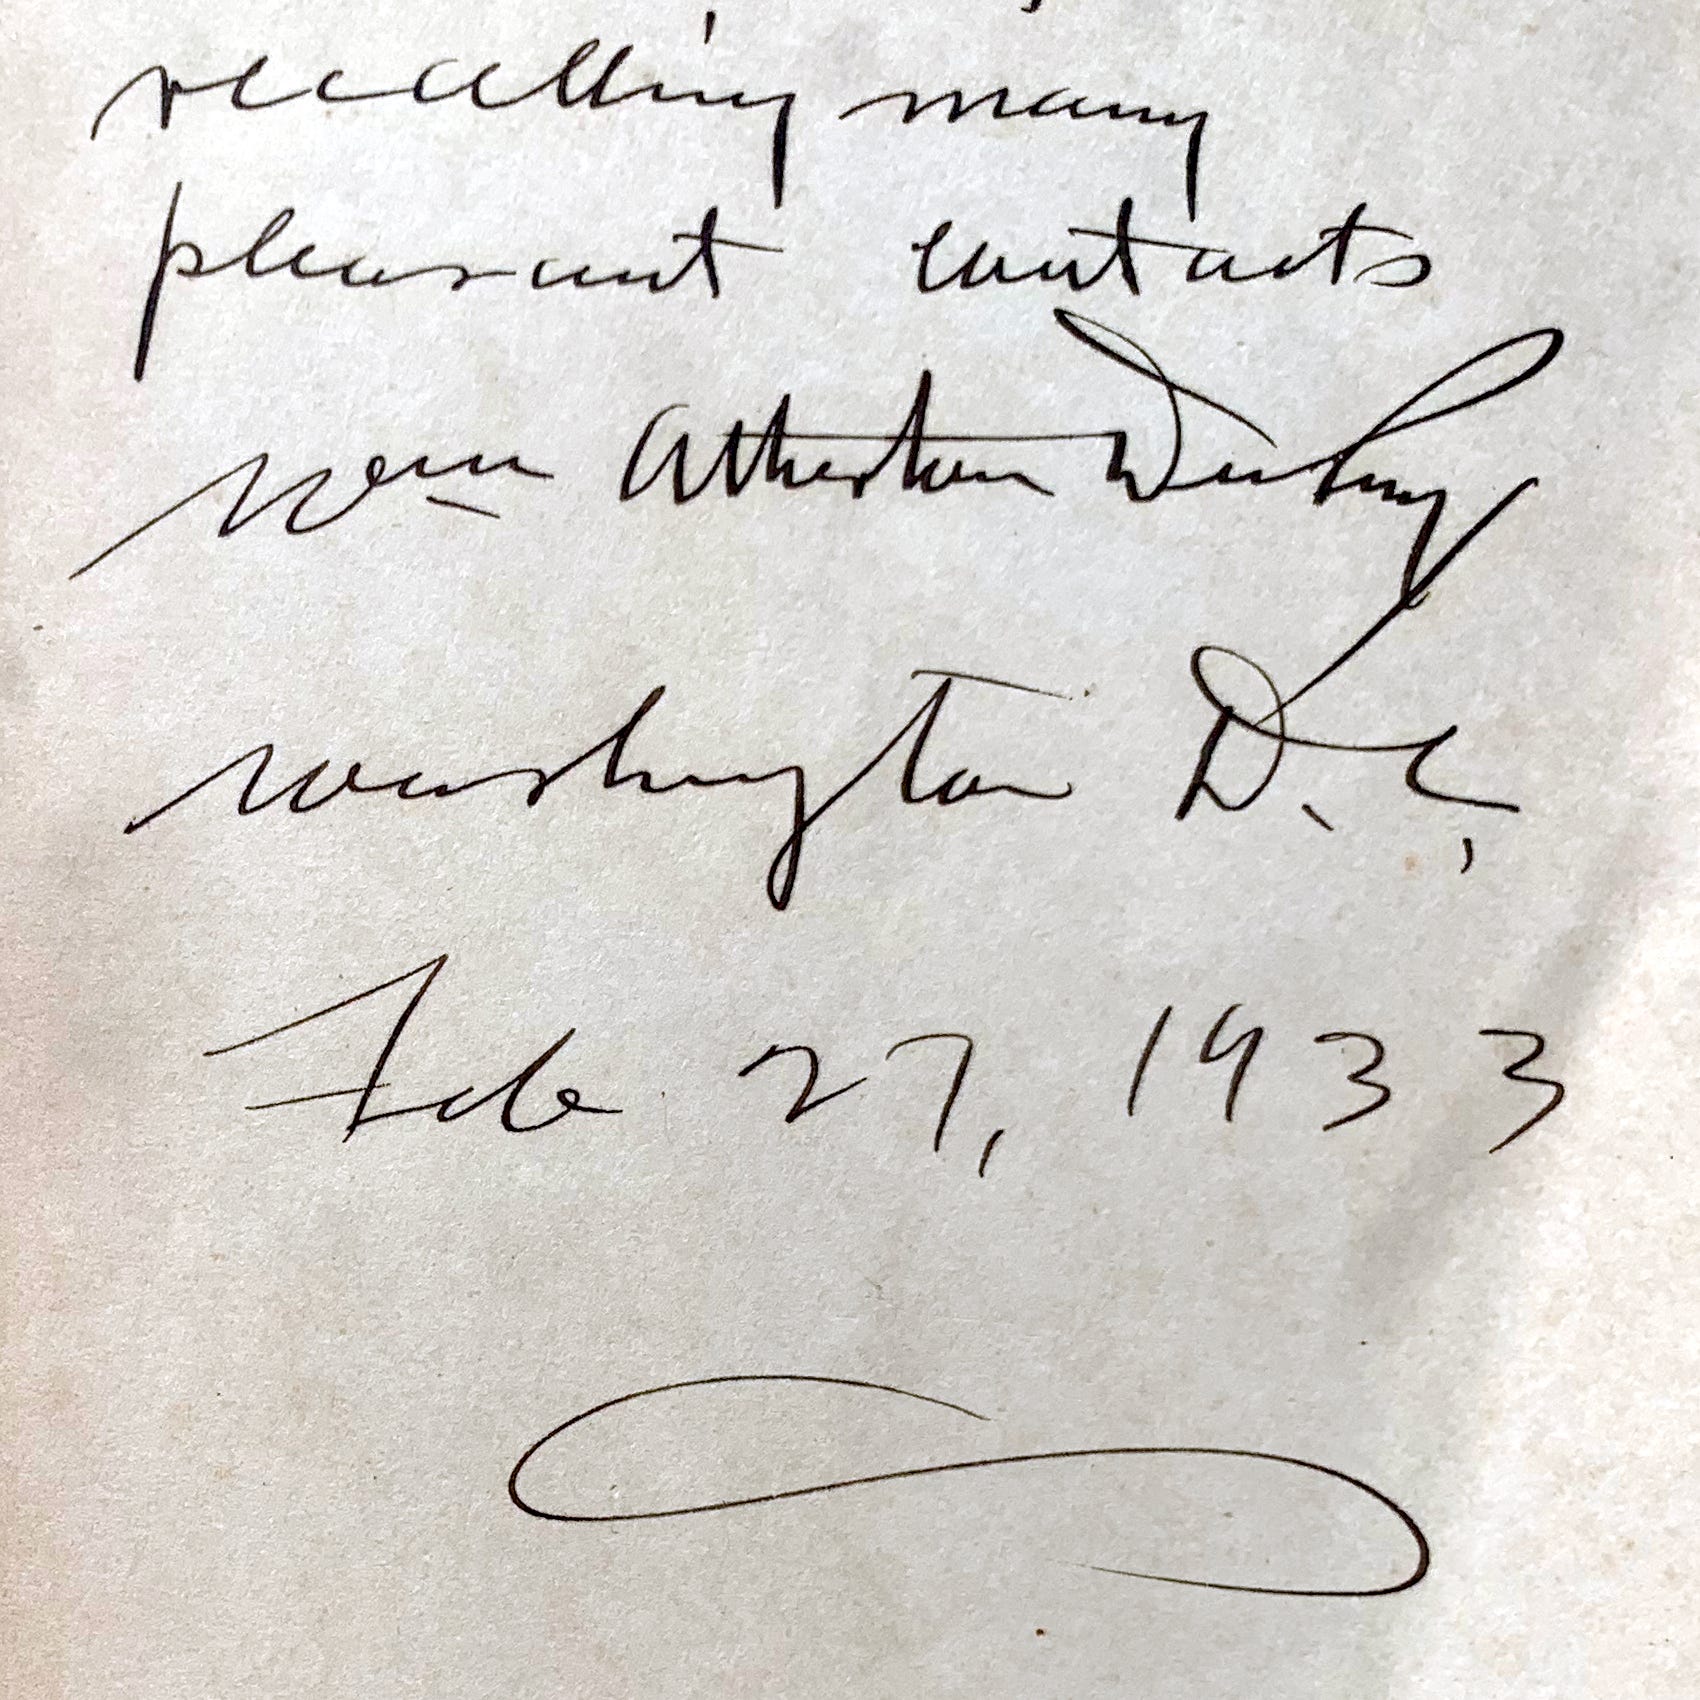 recalling many
pleasant contacts
Wm Atherton DuPuy
Washington D. C.
Feb 27, 1933